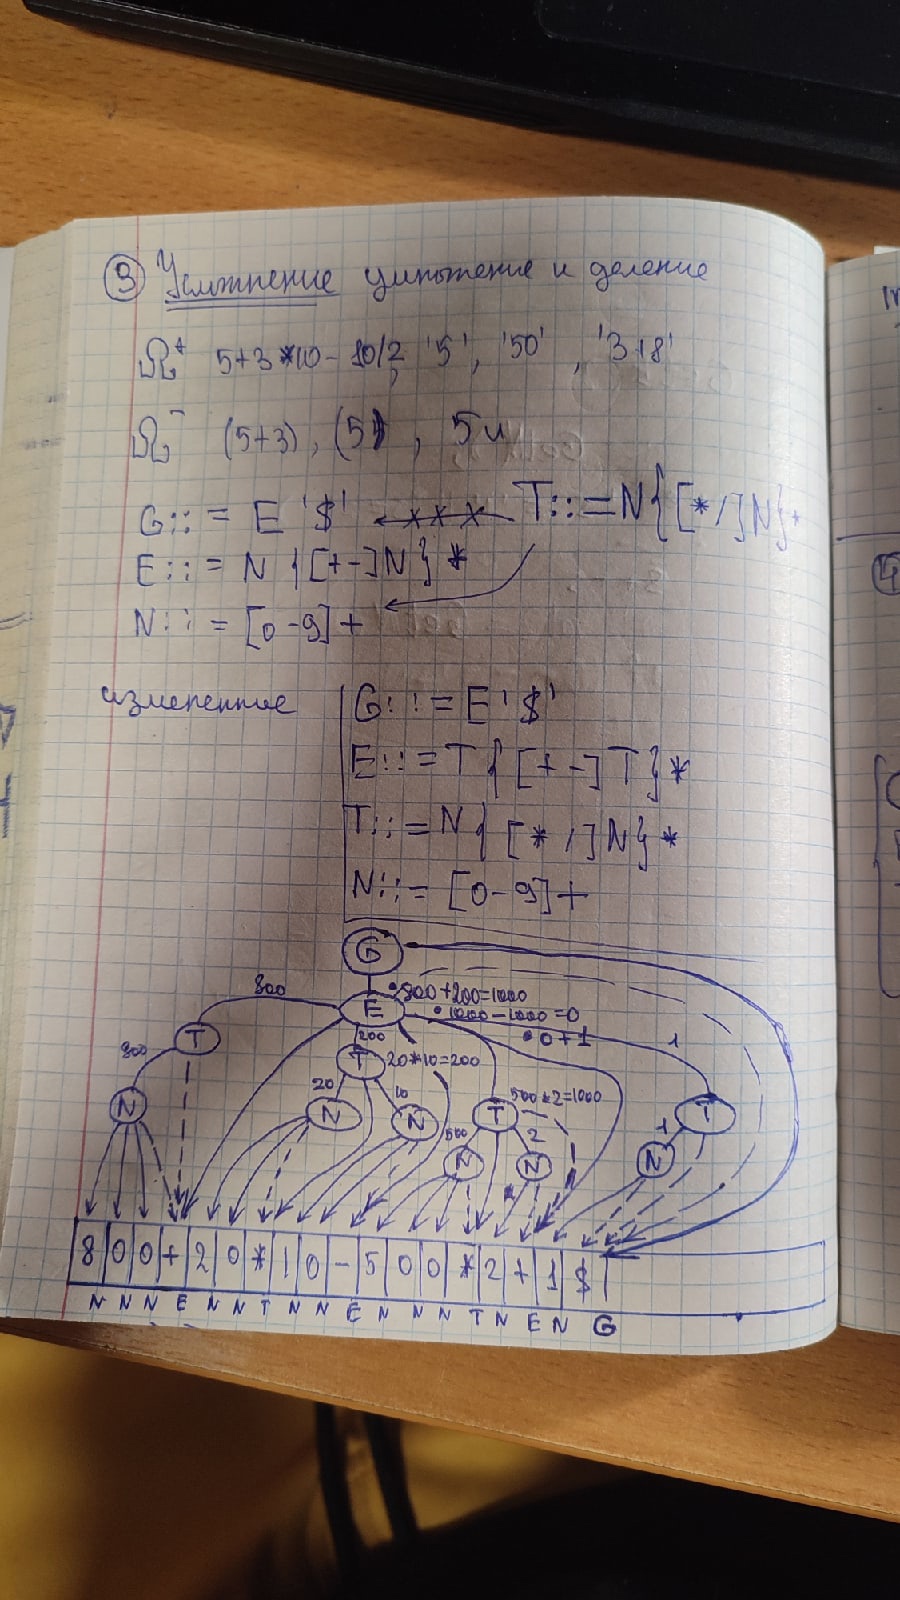 ③ Усложнение умножение и деление
Ω⁺ 5+3*10-10/2, '5', '50', '318'
Ω⁻ (5+3), (5), 5и
G::= E '$' T::=N{[*/]N}*
E::= N {[+-]N}*
N::= [0-9]+
измененное
G::=E'$'
E::=T{[+-]T}*
T::=N{[*/]N}*
N::=[0-9]+
G
800 E •800+200=1000
•1000-1000=0
•0+1
T 200 1
800 T 20*10=200
N 20 N 10 N 500*2=1000
T T
500 N 2 N 1 N
8 0 0 + 2 0 * 1 0 - 5 0 0 * 2 + 1 $
N N N E N N T N N E N N N T N E N G